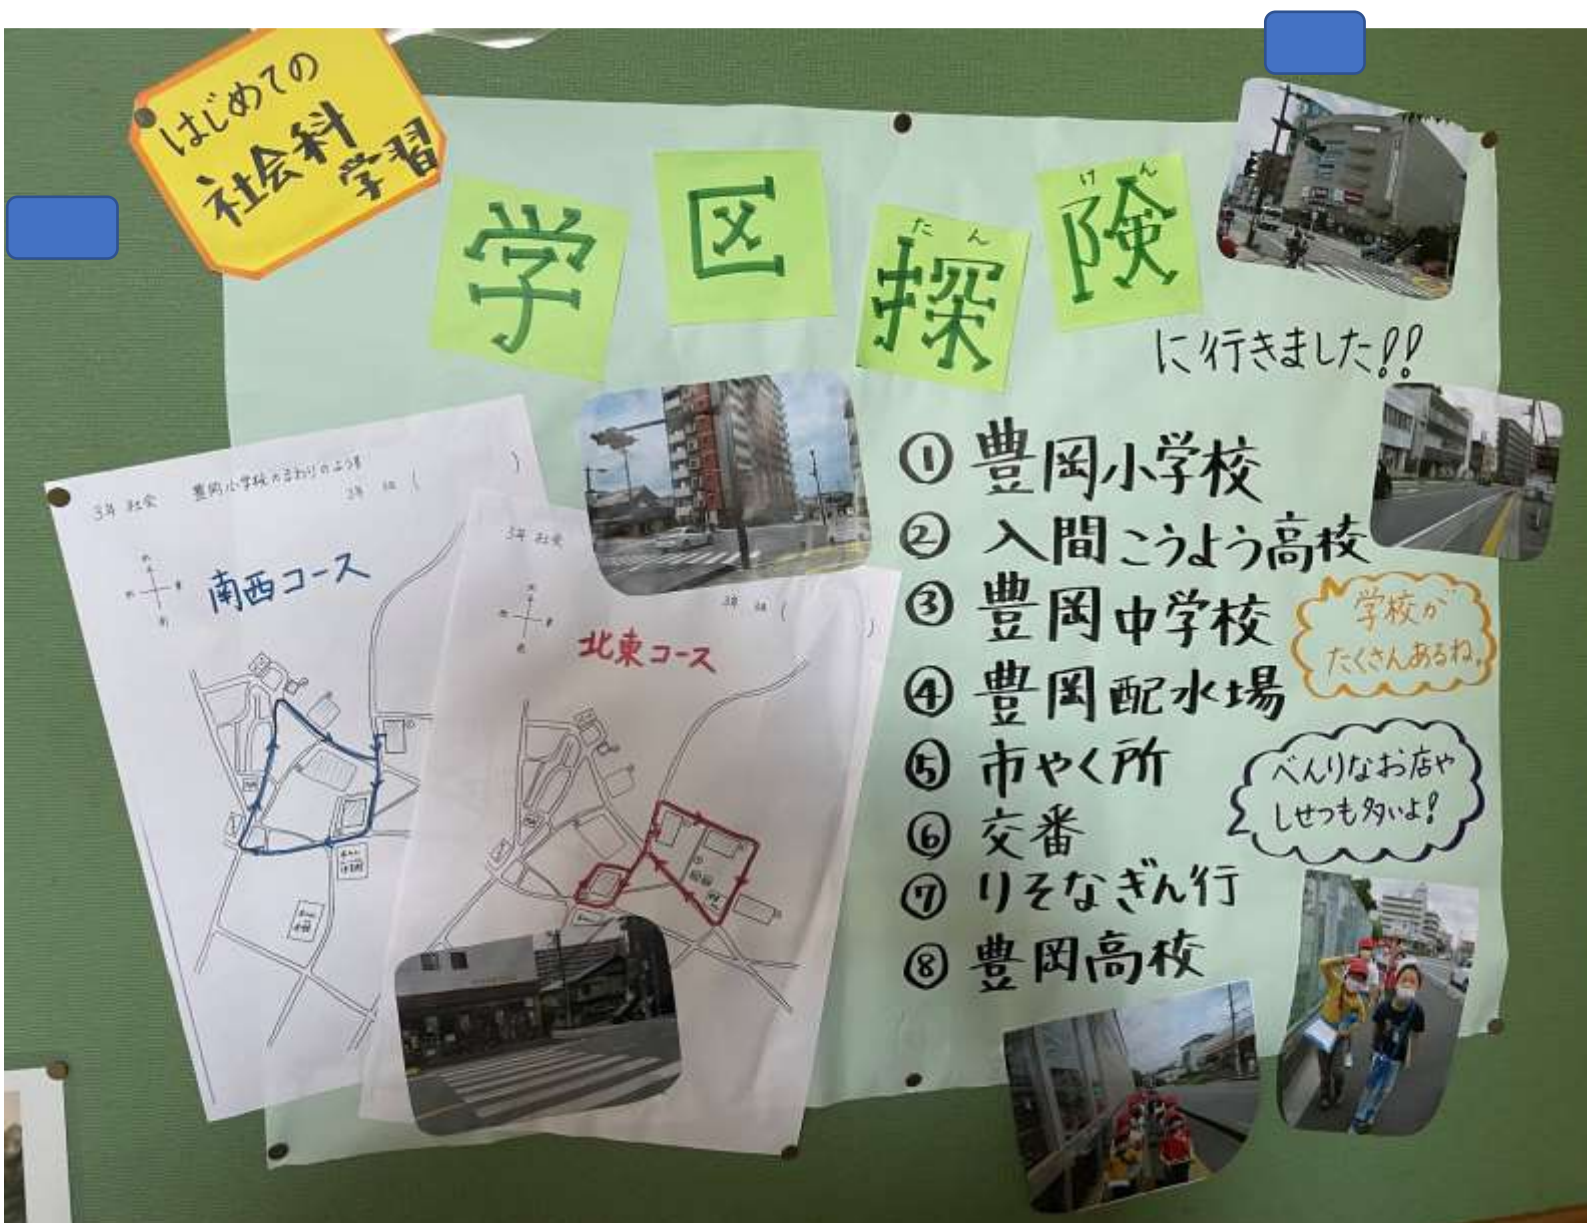 はじめての
社会科
学習
学区探険
たんけん
に行きました!!
①豊岡小学校
②入間こうよう高校
③豊岡中学校
④豊岡配水場
⑤市やく所
⑥交番
⑦りそなぎん行
⑧豊岡高校
学校が
たくさんあるね。
べんりなお店や
しせつも多いよ!
3年 社会 豊岡小学校のまわりのようす
3年 組( )
南西コース
3年 社会
3年 組( )
北東コース